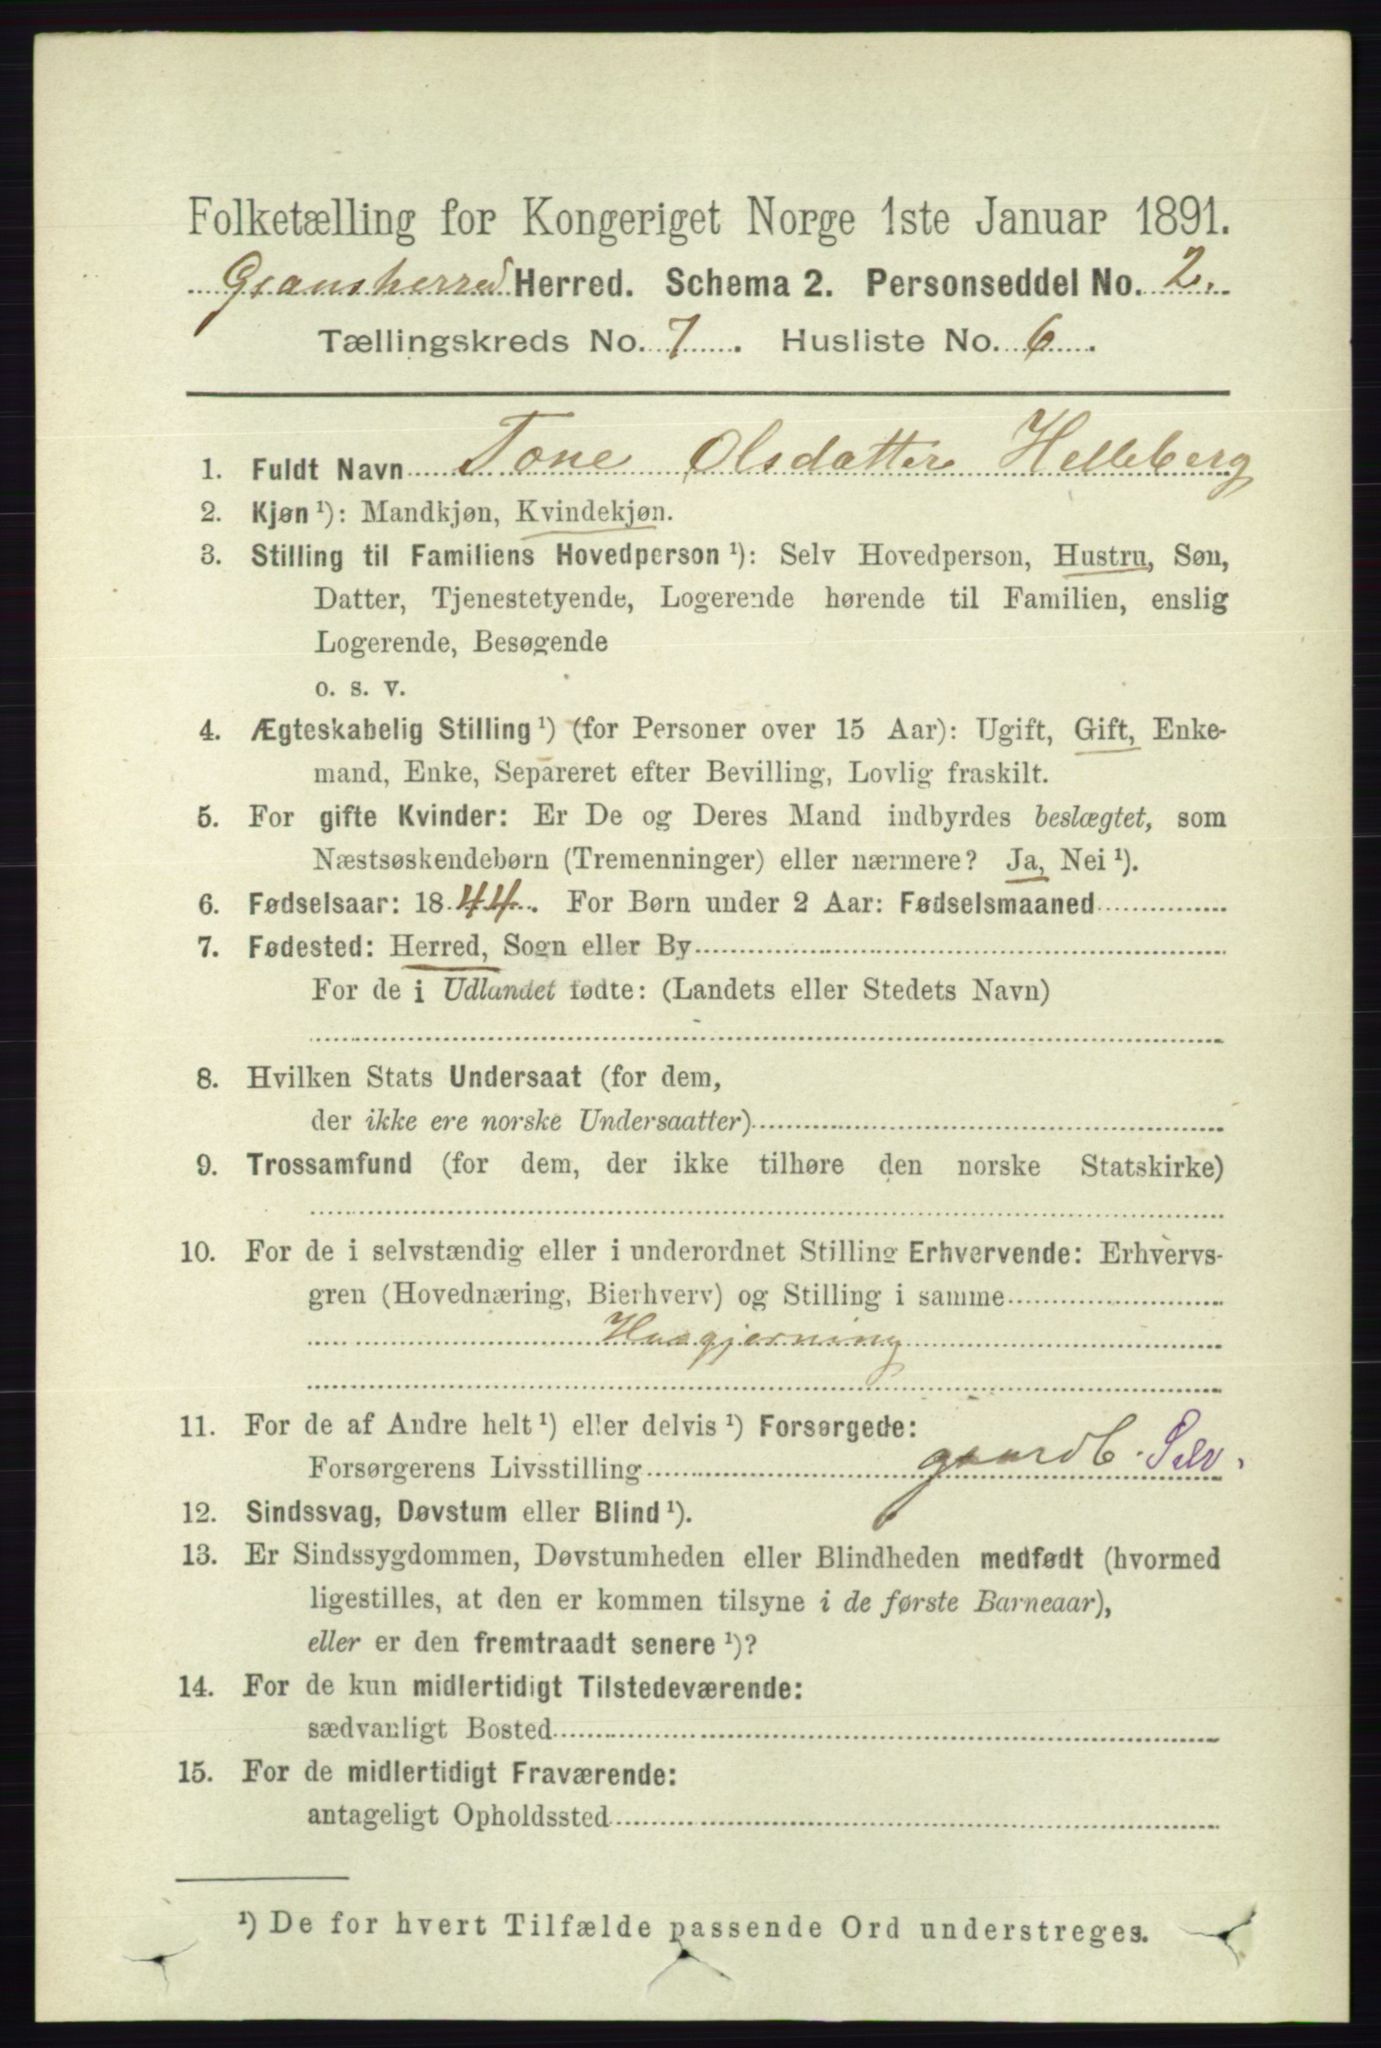 Folketælling for Kongeriget Norge 1ste Januar 1891.
Gransherred Herred. Schema 2. Personseddel No. 2.
Tællingskreds No. 7. Husliste No. 6.
1. Fuldt Navn Tone Olsdatter Helleberg
2. Kjøn ¹): Mandkjøn, Kvindekjøn.
3. Stilling til Familiens Hovedperson ¹): Selv Hovedperson, Hustru, Søn,
Datter, Tjenestetyende, Logerende hørende til Familien, enslig
Logerende, Besøgende
o. s. v.
4. Ægteskabelig Stilling ¹) (for Personer over 15 Aar): Ugift, Gift, Enke-
mand, Enke, Separeret efter Bevilling, Lovlig fraskilt.
5. For gifte Kvinder: Er De og Deres Mand indbyrdes beslægtet, som
Næstsøskendebørn (Tremenninger) eller nærmere? Ja, Nei ¹).
6. Fødselsaar: 1844. For Børn under 2 Aar: Fødselsmaaned
7. Fødested: Herred, Sogn eller By
For de i Udlandet fødte: (Landets eller Stedets Navn)
8. Hvilken Stats Undersaat (for dem,
der ikke ere norske Undersaatter)
9. Trossamfund (for dem, der ikke tilhøre den norske Statskirke)
10. For de i selvstændig eller i underordnet Stilling Erhvervende: Erhvervs-
gren (Hovednæring, Bierhverv) og Stilling i samme
Husgjerning
11. For de af Andre helt ¹) eller delvis ¹) Forsørgede:
Forsørgerens Livsstilling gaardb. Selv.
12. Sindssvag, Døvstum eller Blind ¹).
13. Er Sindssygdommen, Døvstumheden eller Blindheden medfødt (hvormed
ligestilles, at den er kommen tilsyne i de første Barneaar),
eller er den fremtraadt senere ¹)?
14. For de kun midlertidigt Tilstedeværende:
sædvanligt Bosted
15. For de midlertidigt Fraværende:
antageligt Opholdssted
¹) De for hvert Tilfælde passende Ord understreges.